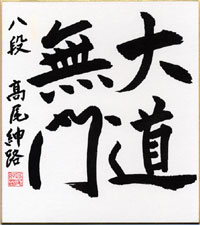 大道
無門
八段 高尾紳路